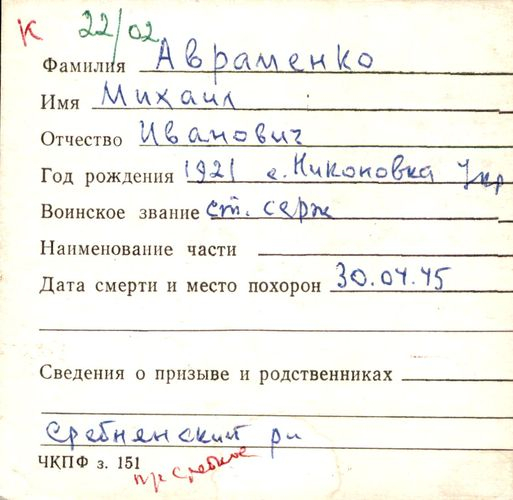 К 22/02
Фамилия Авраменко
Имя Михаил
Отчество Иванович
Год рождения 1921 с. Никоновка Укр
Воинское звание ст. серж
Наименование части
Дата смерти и место похорон 30.04.45
Сведения о призыве и родственниках
Сребнянский рн
ЧКПФ з. 151